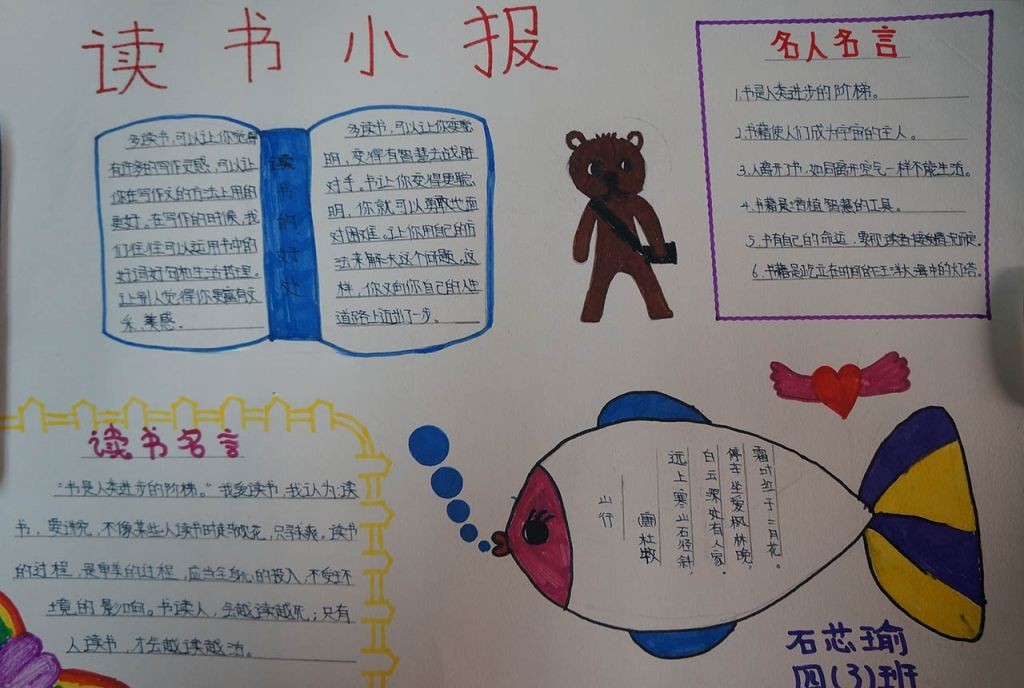 读书小报
多读书,可以让你觉得
有许多的写作灵感,可以让
你在写作文的方法上用的
更好。在写作的时候,我
们往往可以运用书中的
好词好句和生活哲理。
让别人觉得你更富有文
采,美感。
读书的好处
多读书,可以让你变聪
明,变得有智慧去战胜
对手。书让你变得更聪
明,你就可以勇敢地面
对困难。让你用自己的方
法来解决这个问题。这
样,你又向你自己的人生
道路上迈出了一步。
名人名言
1.书是人类进步的阶梯。
2.书籍使人们成为宇宙的主人。
3.人离开了书,如同离开空气一样不能生活。
4.书籍是增植智慧的工具。
5.书有自己的命运,要视读者接
6.书籍是屹立在时间的汪洋大海中的灯塔。
读书名言
“书是人类进步的阶梯。”我爱读书,我认为读
书,要讲究,不像某些人读书时走
的过程,是审美的过程,应当全身心的投入,不受环
境的影响。书读人,会越读越死;只有
人读书,才会越读越活。
山行
唐杜牧
远上寒山石径斜,
白云深处有人家。
停车坐爱枫林晚,
霜叶红于二月花。
石芯瑜
四(3)班